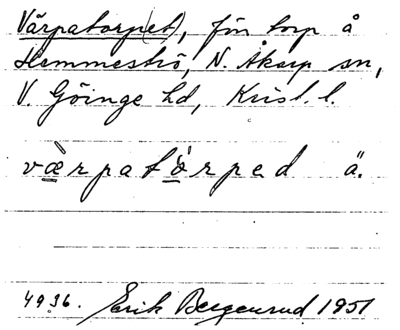 Värpatorp(et), fön torp å
Hemmeströ, N. Åkarp sn,
V. Göinge hd, Krist. l.
væ̀rpatå̀rped ä.
4936. Erik Bergenrud 1951